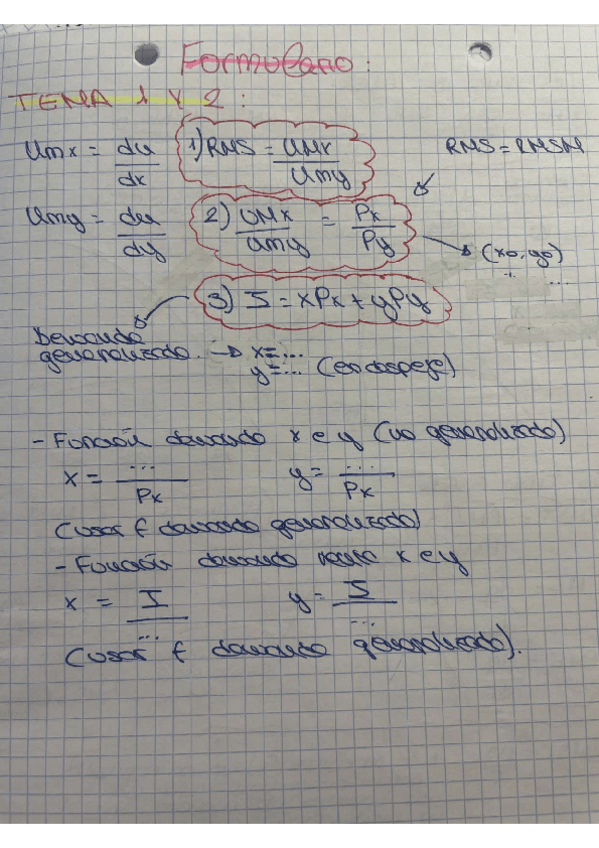 Formulario:
TEMA 1 Y 2:
Umx = du/dx 1) RMS = UMx/Umy RMS = RMSM
Umy = du/dy 2) UMx/Umy = Px/Py → (x0, y0)
...
3) I = xPx + yPy
Demanda
generalizada. → x=...
y=... (en despeje)
- Función demanda x e y (no generalizada)
x = .../Px y = .../Px
(usar f demanda generalizada)
- Función demanda renta x e y
x = I/... y = I/...
(usar f demanda generalizada).